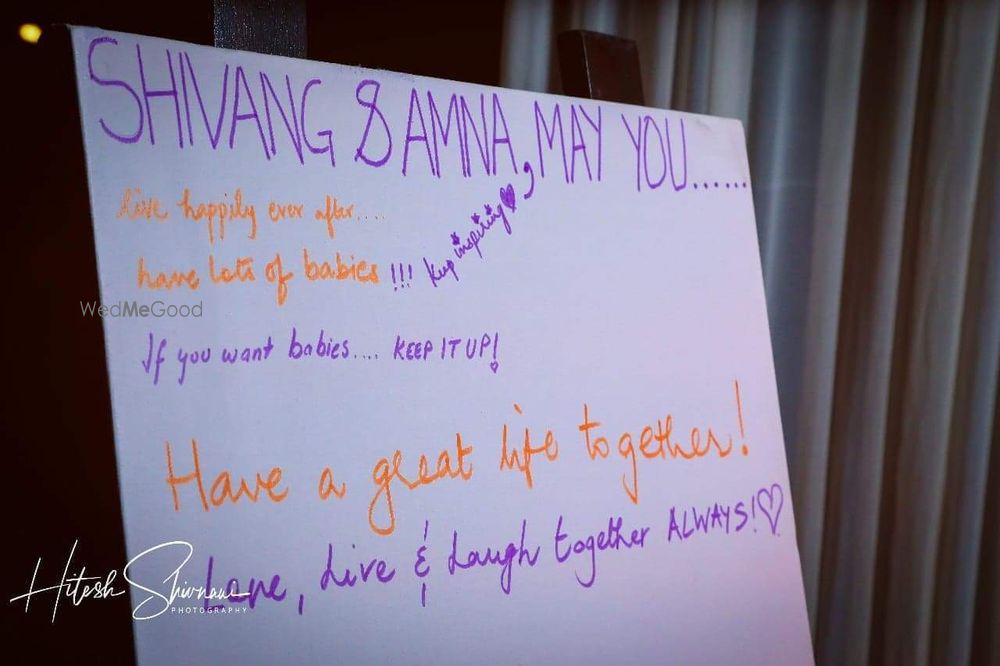 SHIVANG & AMNA, MAY YOU......
live happily ever after....
have lots of babies !!! Keep inspiring
WedMeGood
If you want babies.... KEEP IT UP!
Have a great life together!
Love, Live & Laugh together ALWAYS!♡
Hitesh Shivnani
PHOTOGRAPHY